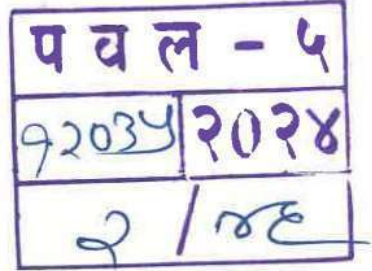 प व ल - ५
१२०३५ २०२४
२ / ४६